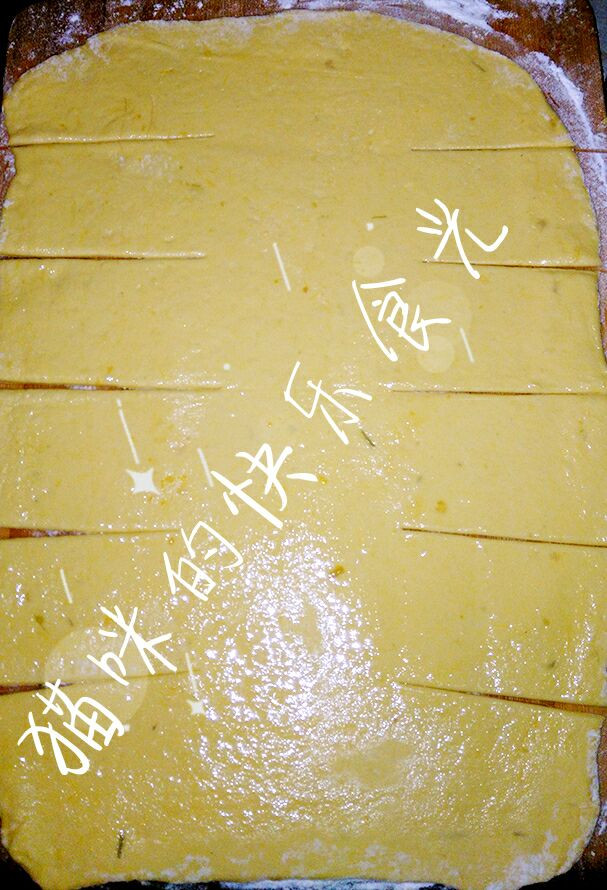 猫咪的快乐食光